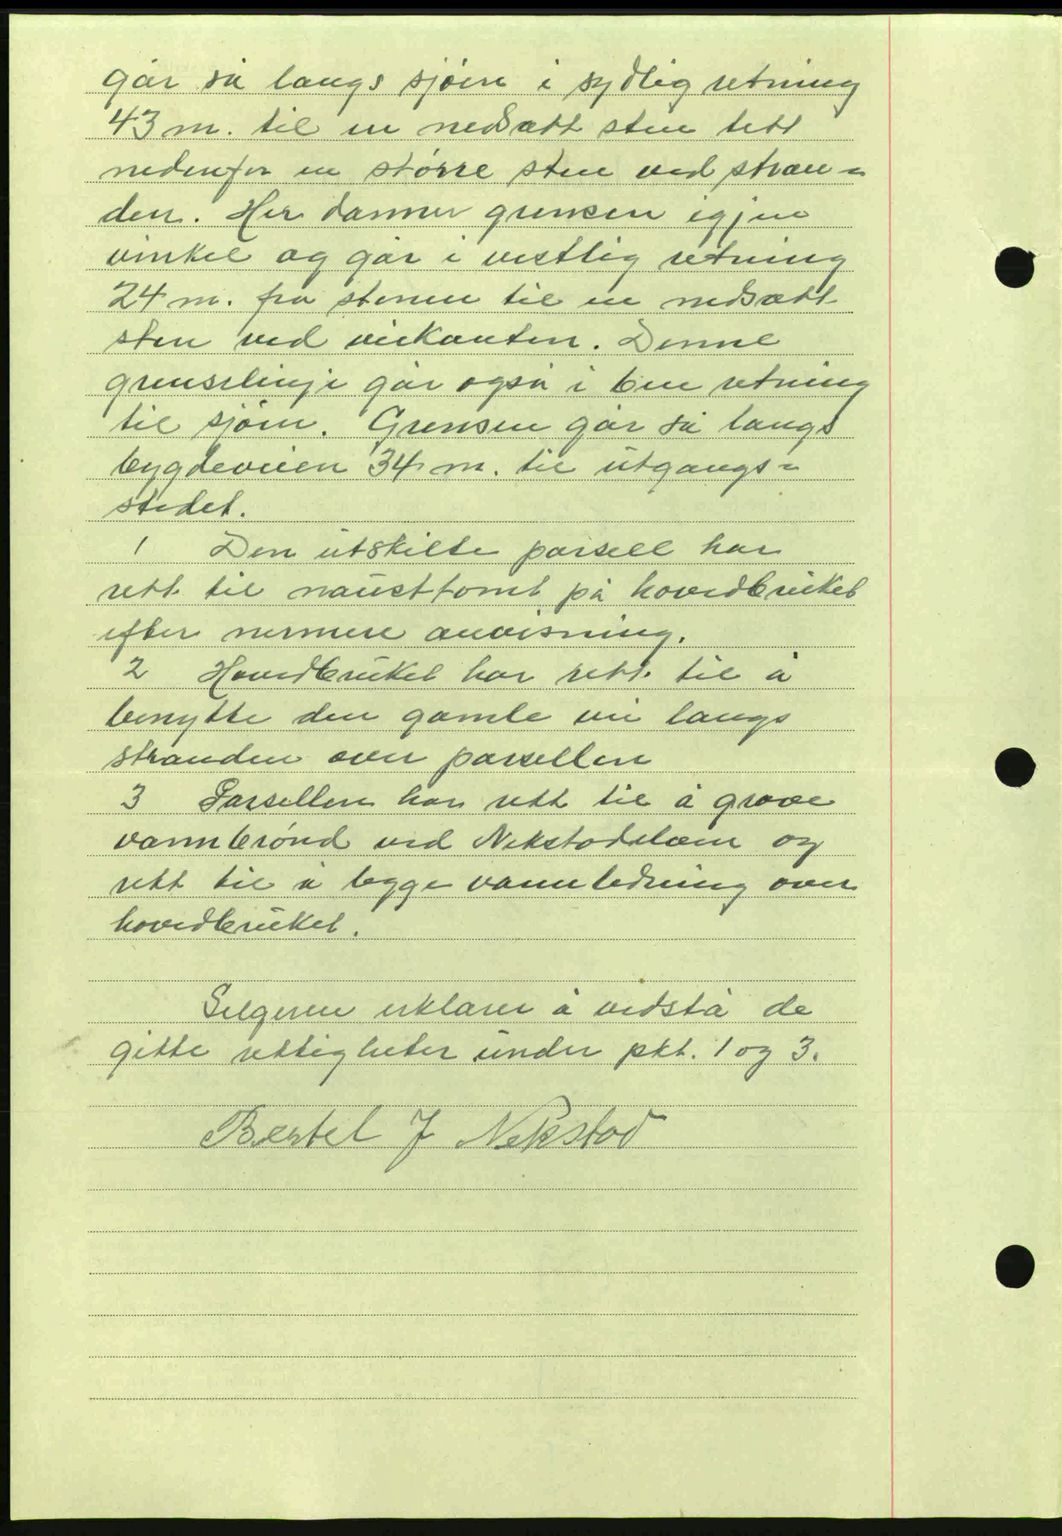 går så langs sjøen i sydlig retning
43 m. til en nedsatt sten tett
nedenfor en større sten ved stran-
den. Her danner grensen igjen
vinkel og går i vestlig retning
24 m. fra stenen til en nedsatt
sten ved veikanten. Denne
grenselinje går også i ben retning
til sjøen. Grensen går så langs
bygdeveien 34 m. til utgangs-
stedet.
1 Den utskilte parsell har
rett til nausttomt på hovedbruket
efter nermere anvisning.
2 Hovedbruket har rett til å
benytte den gamle vei langs
stranden over parsellen
3 Parsellen har rett til å grave
vannbrønd ved Nekstadelven og
rett til å legge vannledning over
hovedbruket.
Selgeren erklærer å vedstå de
gitte rettigheter under pkt. 1 og 3.
Bertel J Nekstad